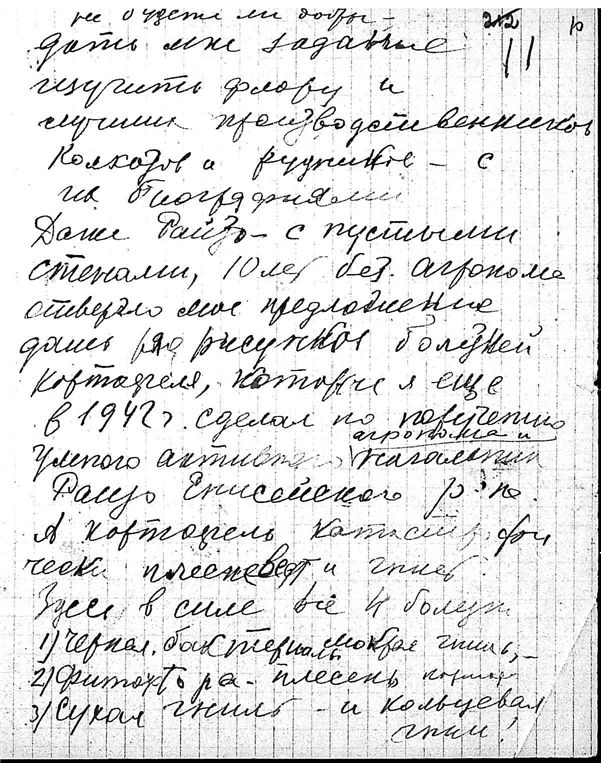 не будете ли добры -
дать мне заданье
изучить флору и
лучших производственников
Колхозов и рудников - с
их биографиями
Даже Райзо - с пустыми
стенами, 10 лет без агронома
отвергло мое предложение
дать ряд рисунков болезней
картофеля, которые я еще
в 1942 г. сделал по поручению
агронома и
умного активного начальника
Райзо Енисейского р-на.
А картофель катастрофи
чески плесневеет и гниет.
Здесь в силе все 4 болезни
1) Черная, бактериальн мокрая гниль, -
2) Фитофтора - плесень
3) Сухая гниль - и кольцевая
гниль!
11